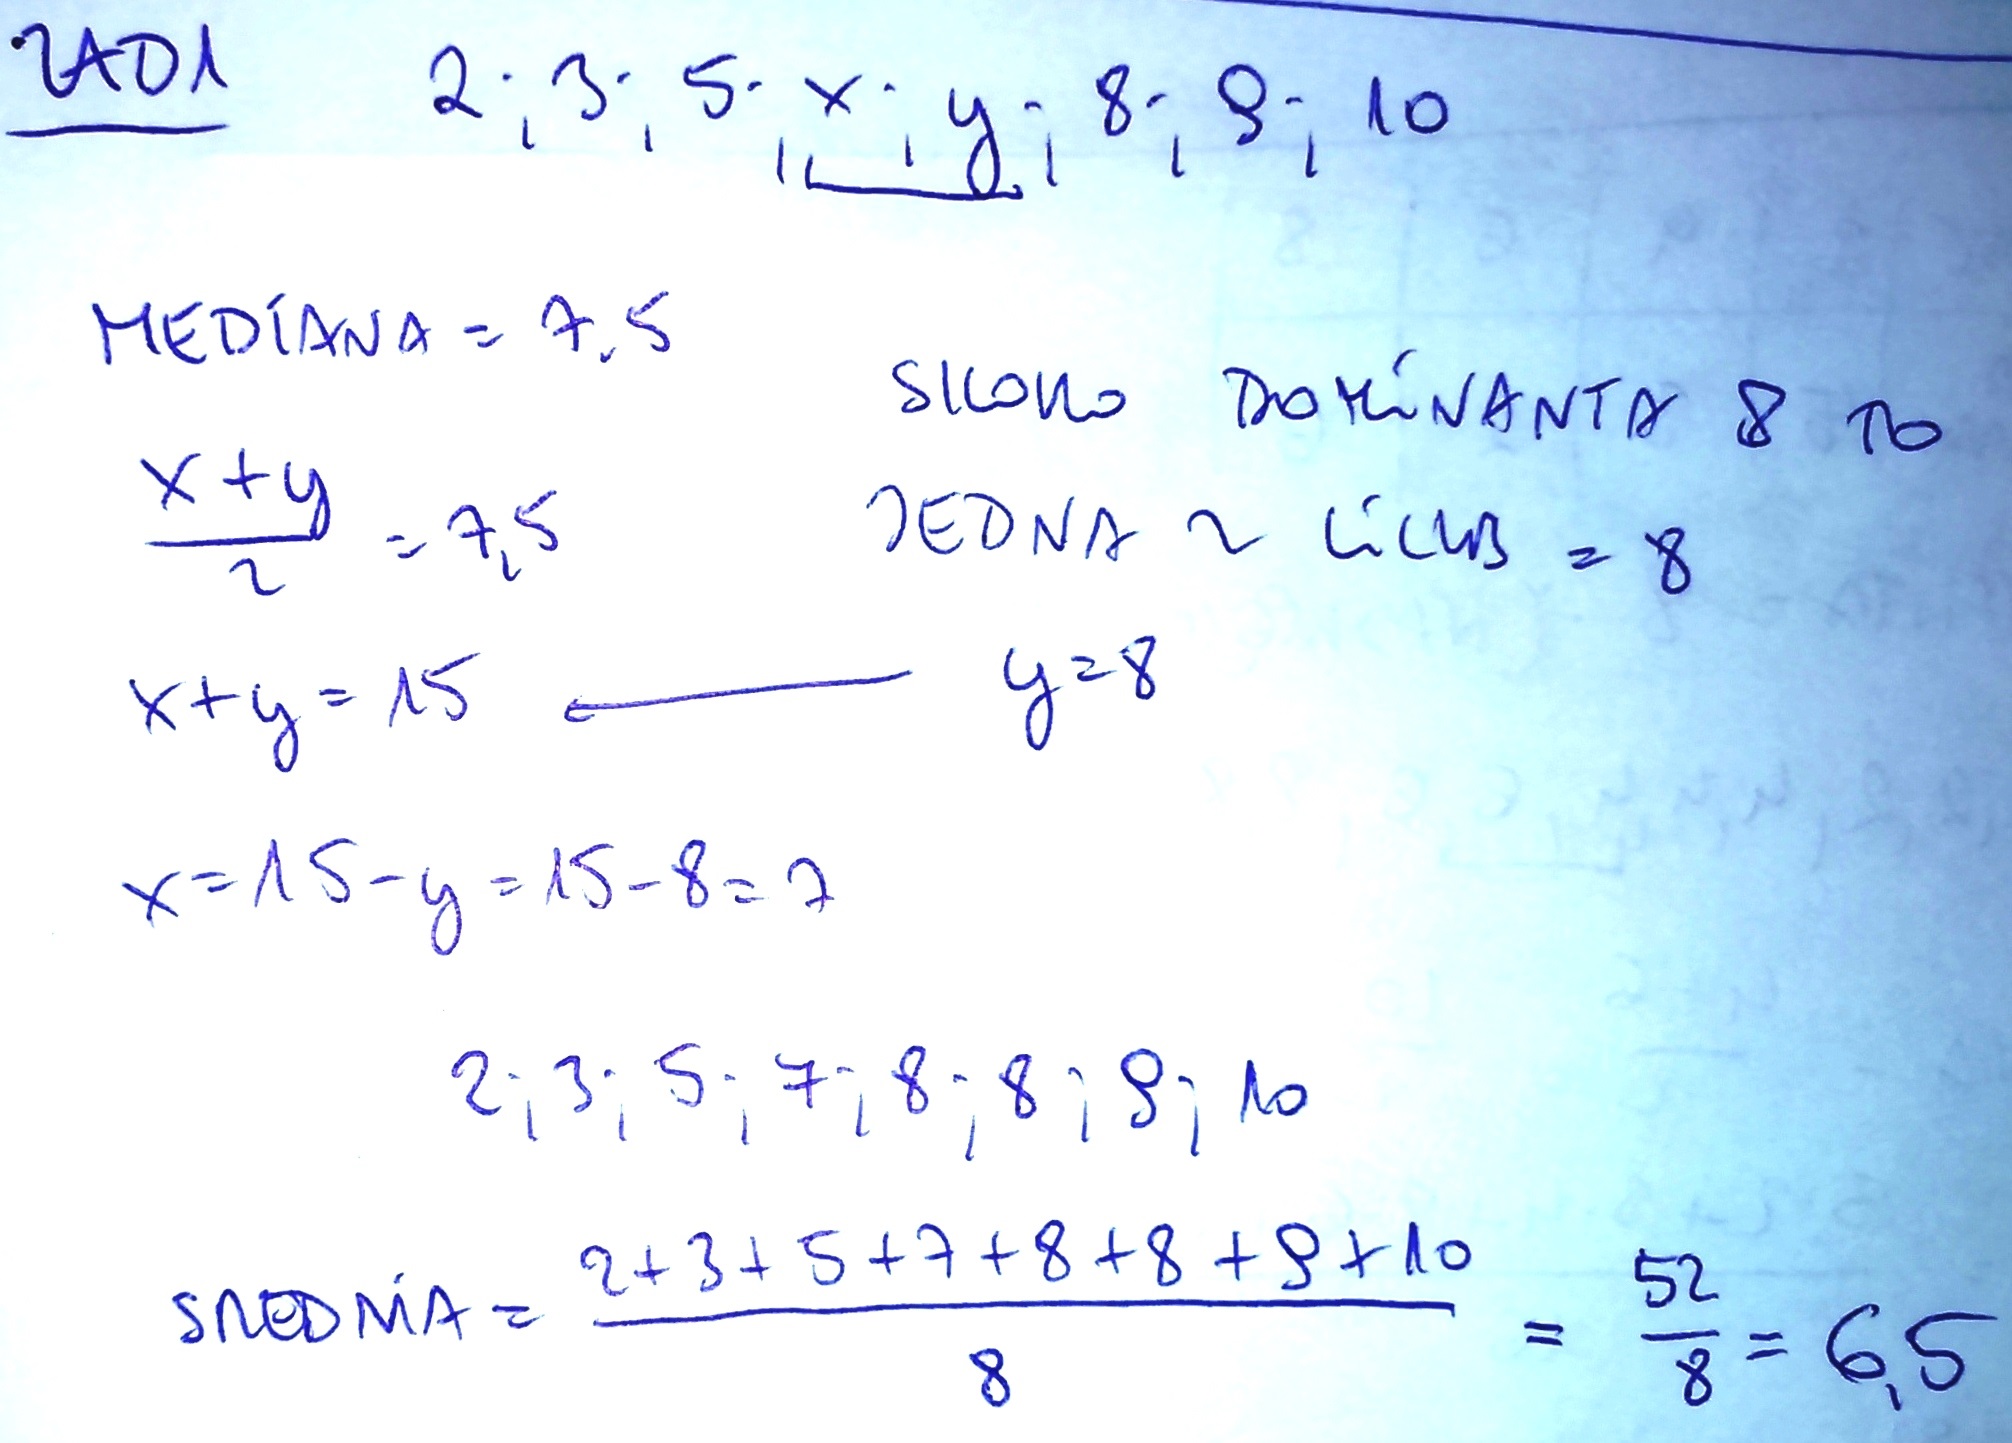 ZAD1 2; 3; 5; x; y; 8; 9; 10
MEDIANA = 7,5
SKORO DOMINANTA 8 TO
x+y/2 = 7,5
JEDNA Z LICZB = 8
x+y=15 ← y=8
x=15-y=15-8=7
2; 3; 5; 7; 8; 8; 9; 10
SREDNIA = 2+3+5+7+8+8+9+10/8 = 52/8 = 6,5